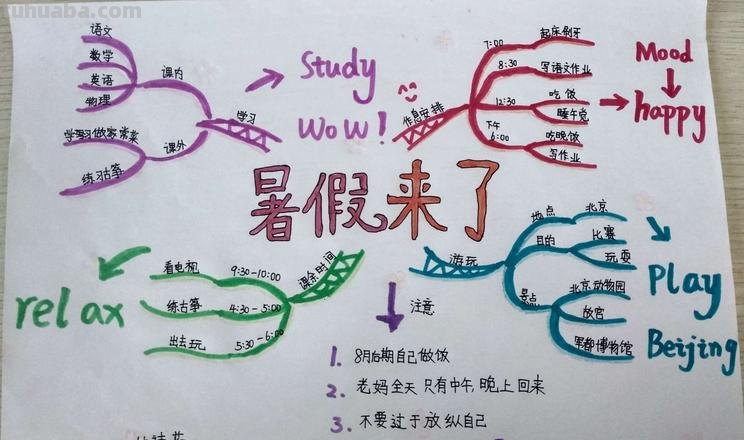 tuhuaba.com
语文
数学
英语
物理
课内
学习
课外
学习做家常菜
练习古筝
Study
Wow!
作息安排
7:00
起床刷牙
8:30
写语文作业
12:30
吃饭
睡午觉
下午
6:00
吃晚饭
写作业
Mood
happy
暑假来了
课余时间
看电视
9:30-10:00
练古筝
4:30-5:00
出去玩
5:30-6:00
relax
游玩
地点
北京
目的
比赛
玩耍
景点
北京动物园
故宫
军都博物馆
Play
Beijing
注意
1. 8月后期自己做饭
2. 老妈全天只有中午,晚上回来
3. 不要过于放纵自己